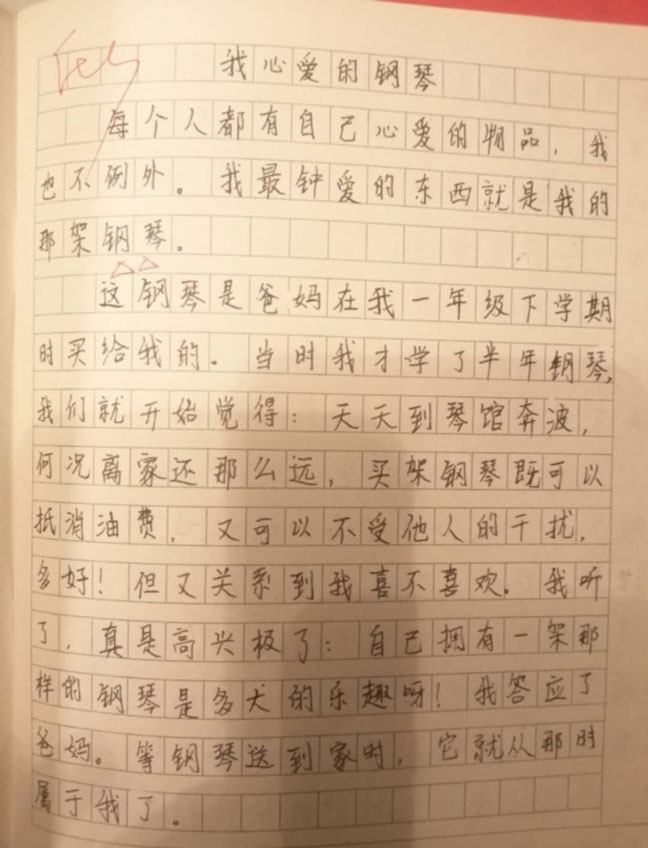 我心爱的钢琴
每个人都有自己心爱的物品，我
也不例外。我最钟爱的东西就是我的
那架钢琴。
这钢琴是爸妈在我一年级下学期
时买给我的。当时我才学了半年钢琴，
我们就开始觉得：天天到琴馆奔波，
何况离家还那么远，买架钢琴既可以
抵消油费，又可以不受他人的干扰，
多好！但又关系到我喜不喜欢。我听
了，真是高兴极了：自己拥有一架那
样的钢琴是多大的乐趣呀！我答应了
爸妈。等钢琴送到家时，它就从那时
属于我了。